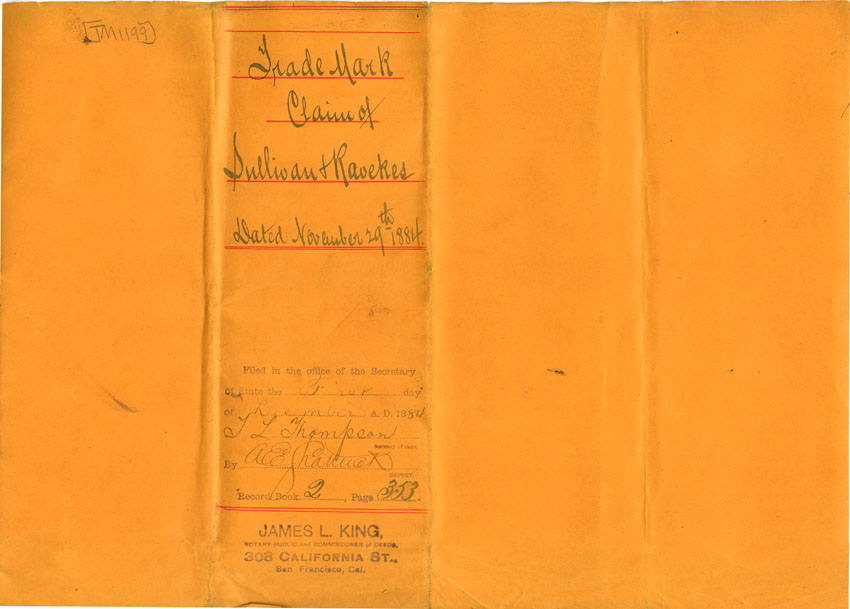 [TM1199]
Trade Mark
Claim of
Sullivan & Ravekes
Dated November 29th 1884.
Filed in the office of the Secretary
of State the First day
of December A. D. 1884
T L Thompson
Secretary of State.
By A E
DEPUTY.
Record Book 2, Page 353.
JAMES L. KING,
NOTARY PUBLIC and COMMISSIONER of DEEDS,
308 CALIFORNIA ST.,
San Francisco, Cal.